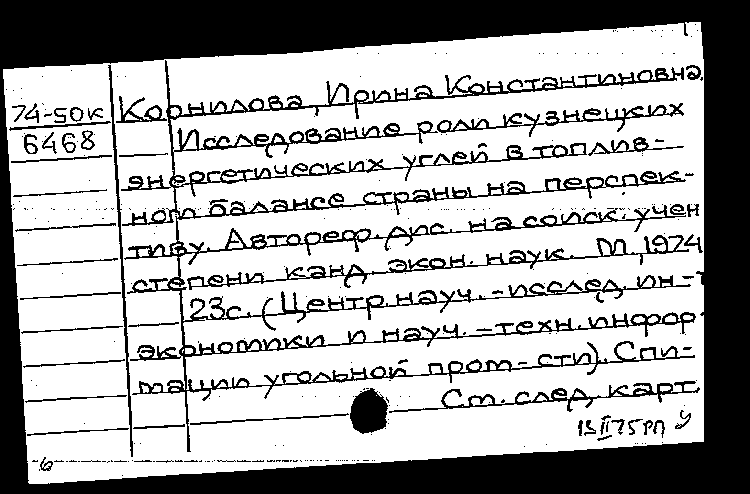 74-50к
6468
Корнилова, Ирина Константиновна.
Исследование роли кузнецких
энергетических углей в топлив-
ном балансе страны на перспек-
тиву. Автореф. дис. на соиск. учен
степени канд. экон. наук. М., 1974
23с. (Центр. науч.-исслед. ин-т
экономики и науч.-техн. инфор-
мации угольной пром-сти). Спи-
См. след. карт.
13 II 75 рп